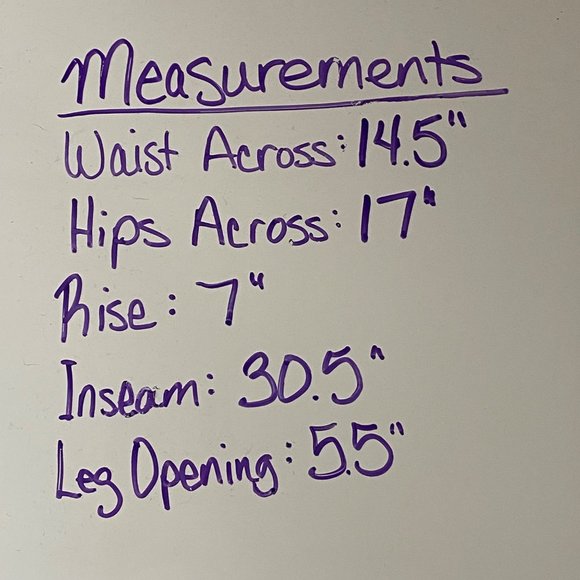 Measurements
Waist Across: 14.5"
Hips Across: 17"
Rise: 7"
Inseam: 30.5"
Leg Opening: 5.5"